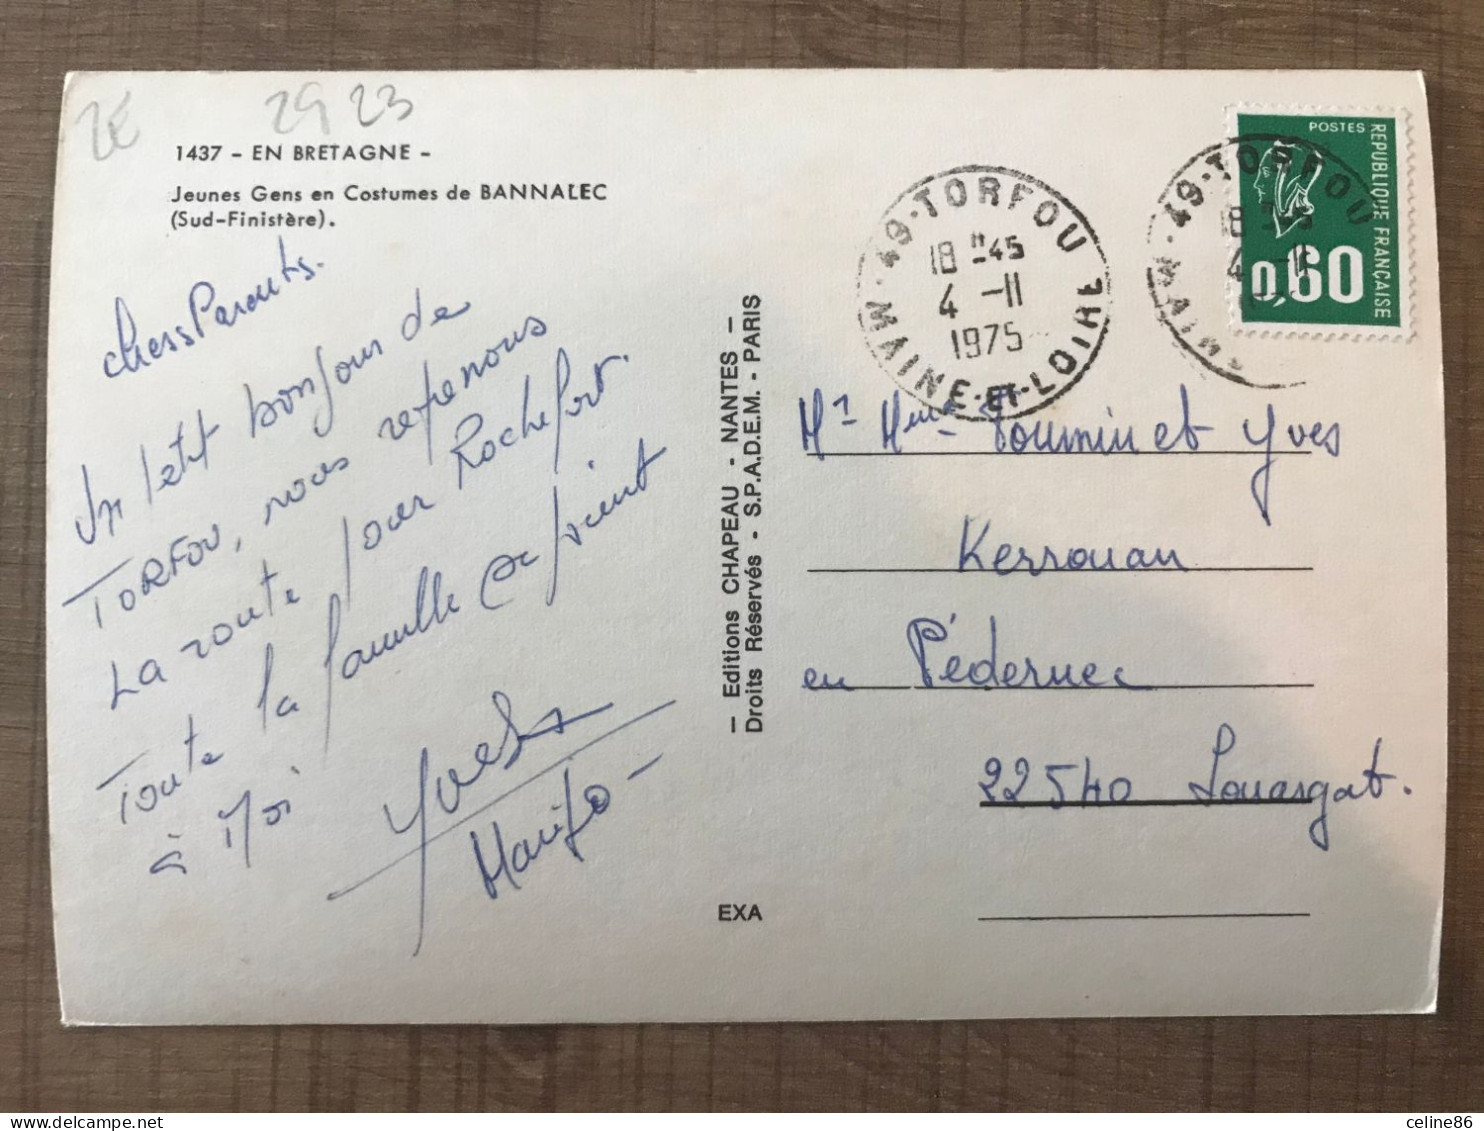 2E 29 23
1437 - EN BRETAGNE -
Jeunes Gens en Costumes de BANNALEC
(Sud-Finistère).
chers Parents.
Un petit bonjour de
TORFOU, nous reprenons
La route pour Rochefort.
Toute la famille se joint
à moi
Yves
— Editions CHAPEAU - NANTES —
Droits Réservés - S.P.A.D.E.M. - PARIS
EXA
49-TORFOU
18H-45
4 -11
1975
MAINE-ET-LOIRE
49-TORFOU
18H-45
4 -11
MAINE
POSTES
REPUBLIQUE FRANÇAISE
0,60
Mr Mme Toumin et Yves
Kerrouan
en Pédernec
22540 Louargat.
celine86